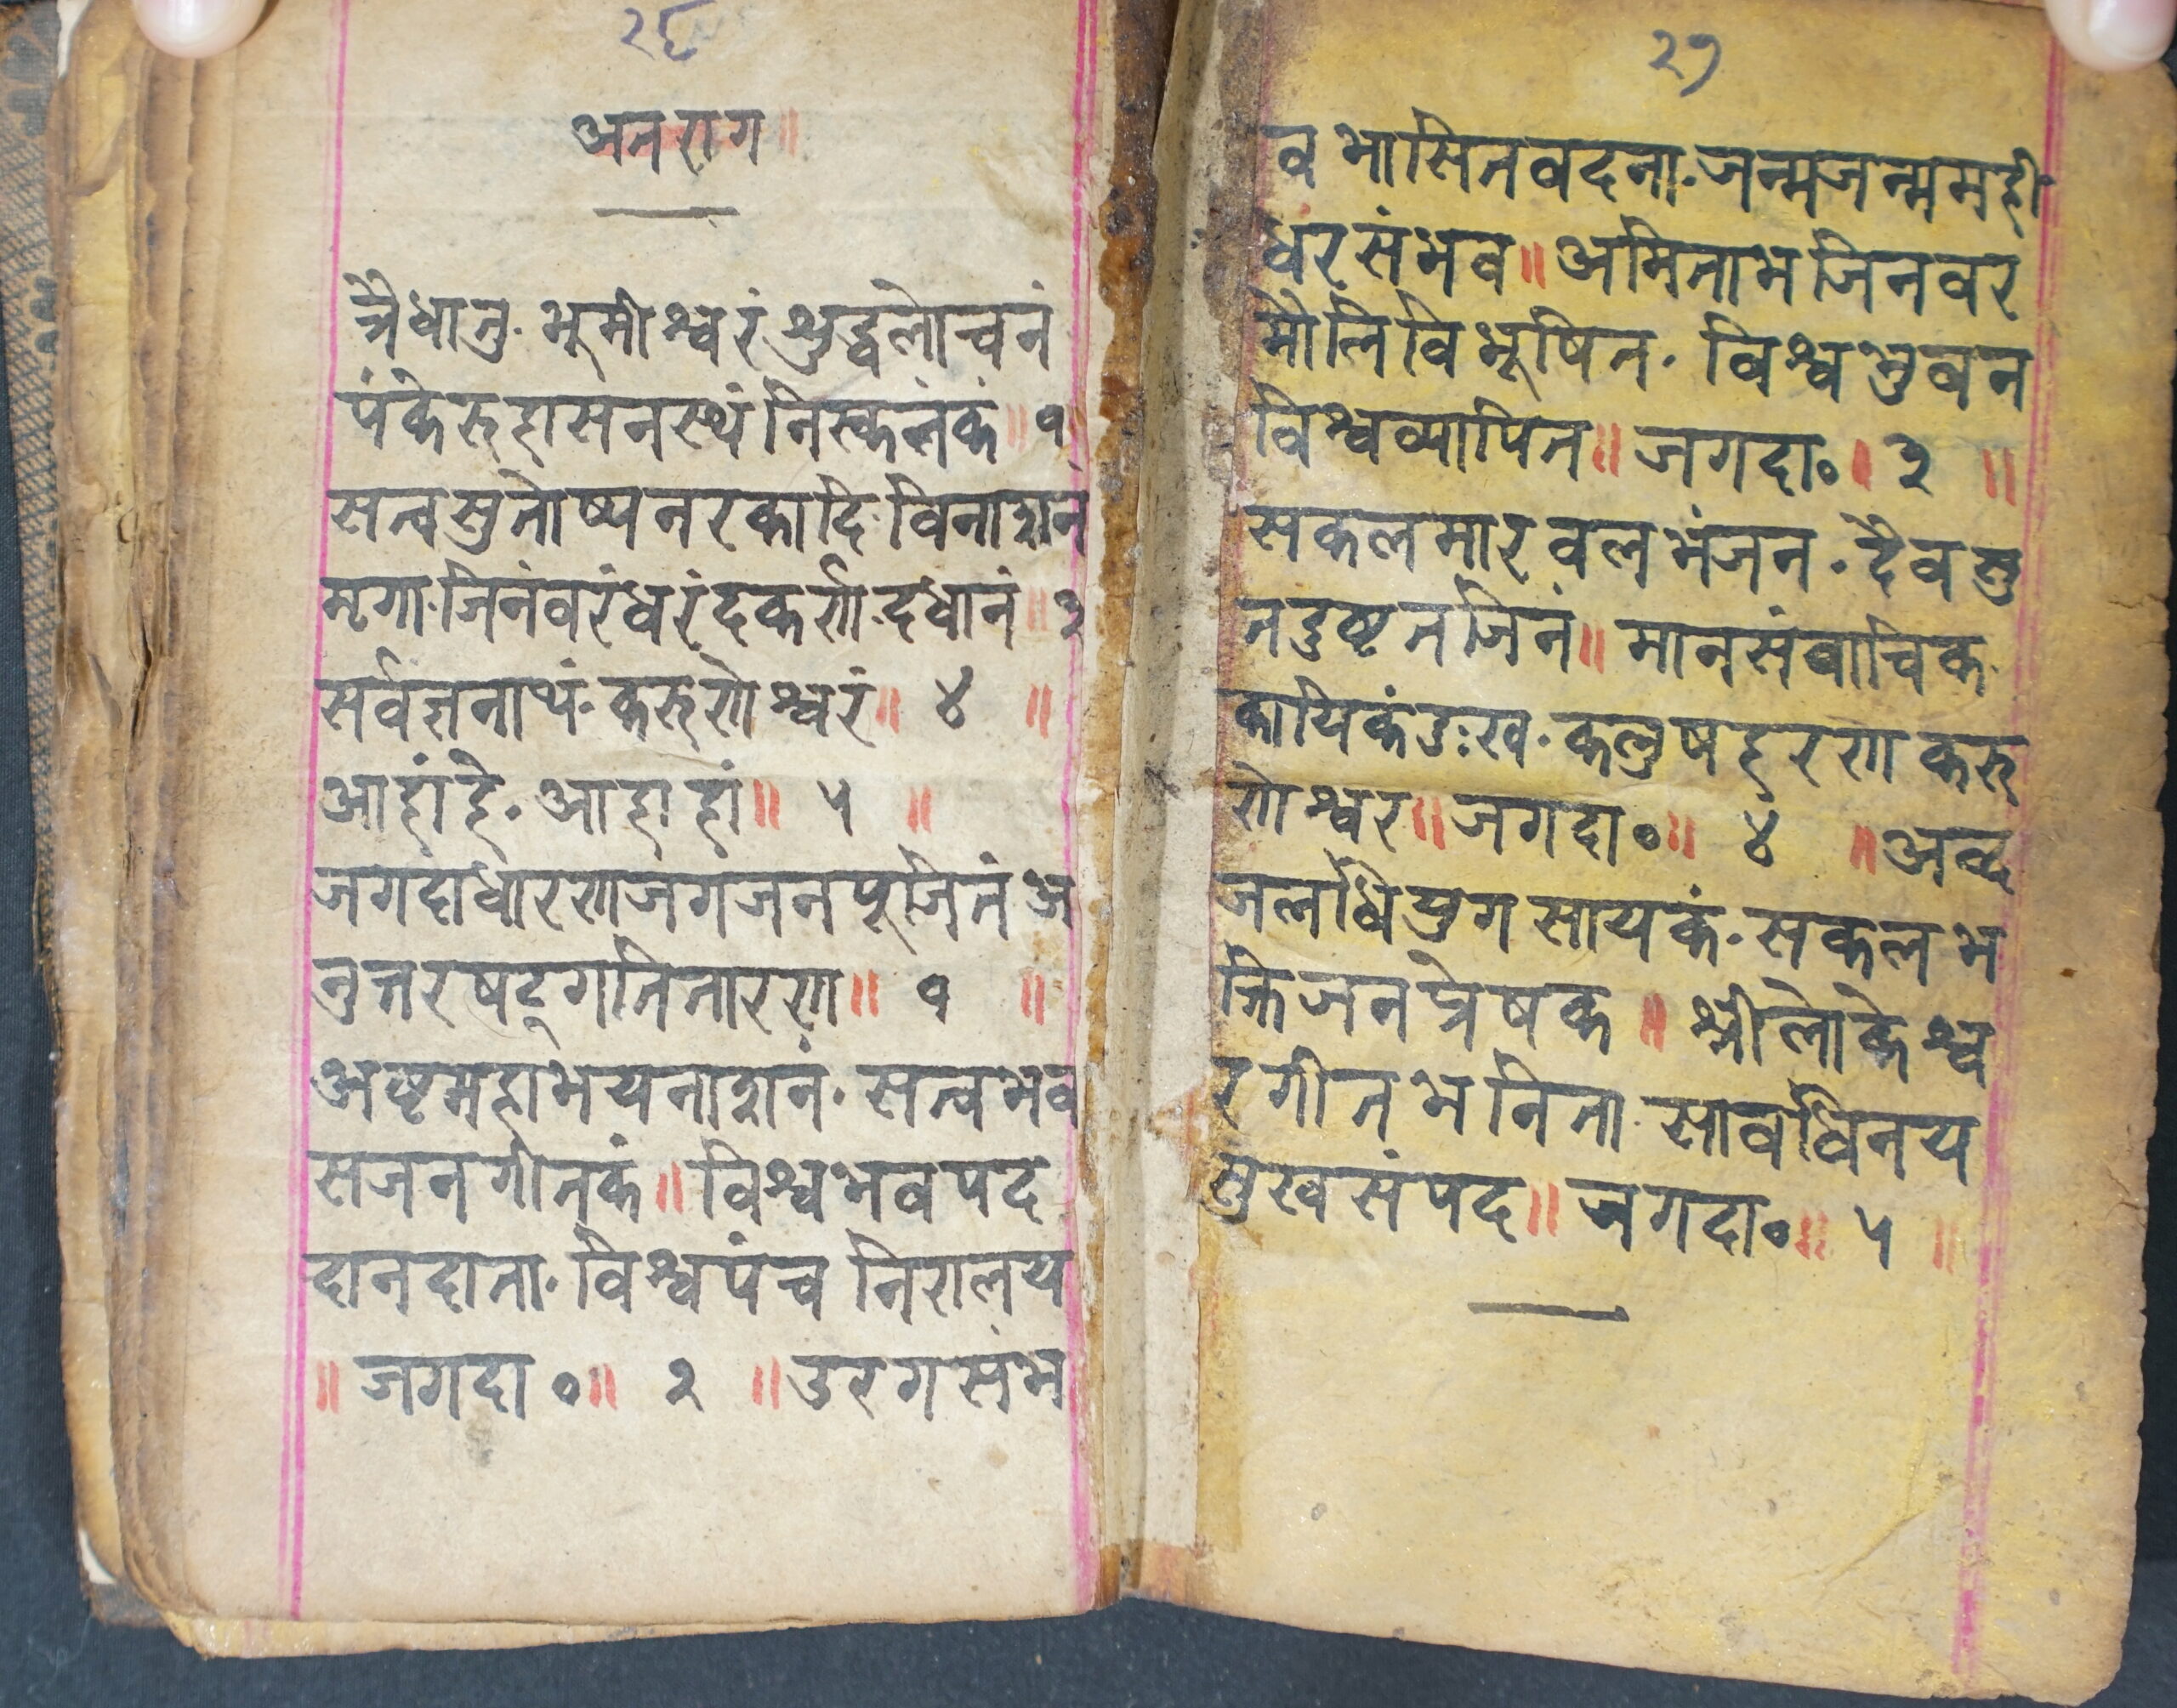 २६
अनराग॥
त्रैधातु·भूमीश्वरं श्रुद्धलोचनं
पंकेरुहासनस्थं निस्कलंकं॥१
सत्वसुतोष्यनरकादिविनाशनं
मृगाजिनंवरंधरंदकर्णदधानं॥३
सर्वज्ञनाथं·करुणेश्वरं॥४॥
आहांहे·आहाहां॥५॥
जगदाधारणजगंजनपूजितं अ
नुत्तरषट्गतितारण॥१॥
अष्टमहाभयनाशनं·सत्वभव
सजनगीतकं॥विश्वभवपद
दानदाता·विश्वपंच निरालय
॥जगदा०॥२॥उरगसंभ
२७
वभासितवदना·जन्मजन्ममही·
धरसंभव॥अमिताभजिनवर
मौलिविभूषित·विश्वभुवन
विश्वव्यापित॥जगदा०।३॥
सकलमारवलभंजन·दैवसु
तदुष्टतजितं॥मानसंवाचिक
कायिकंदुःख·कलुषहरणकरु
णेश्वर॥जगदा०॥४॥अव्द
जलधियुगसायकं·सकलभ
क्तिजनप्रेषक॥श्रीलोकेश्व
रगीतभनिता·सावधिनय
सुखसंपद॥जगदा०॥५॥